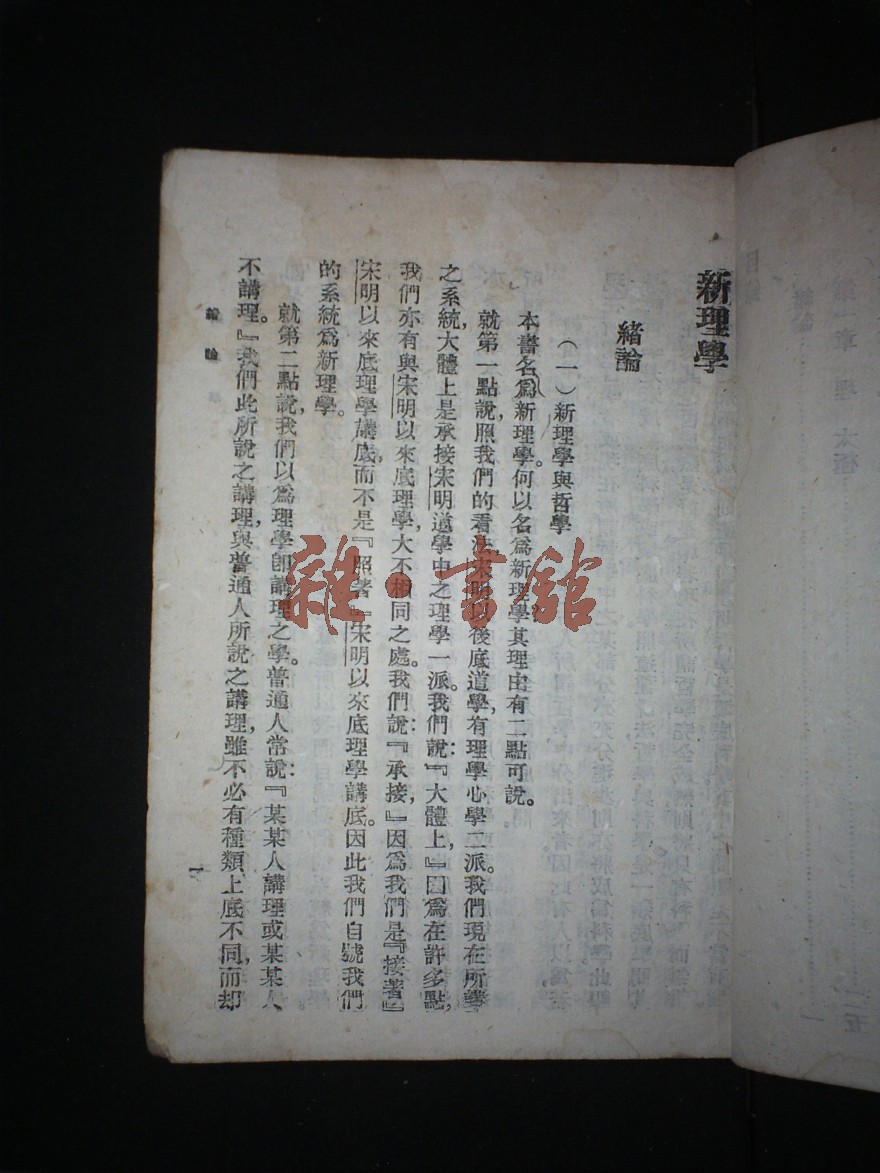 新理學
緒論
（一）新理學與哲學
本書名爲新理學。何以名爲新理學，其理由有二點可說。
就第一點說，照我們的看法，宋明以後底道學，有理學心學二派。我們現在所講
之系統，大體上是承接宋明道學中之理學一派。我們說：『大體上，』因爲在許多點，
我們亦有與宋明以來底理學，大不相同之處。我們說：『承接，』因爲我們是『接著』
宋明以來底理學講底，而不是『照著』宋明以來底理學講底。因此我們自號我們
的系統爲新理學。
就第二點說，我們以爲理學即講理之學。普通人常說：『某某人講理或某某人
不講理。』我們此所說之講理，與普通人所說之講理，雖不必有種類上底不同，而却
緒論
一
目
第一章 理 太極
雜·書館